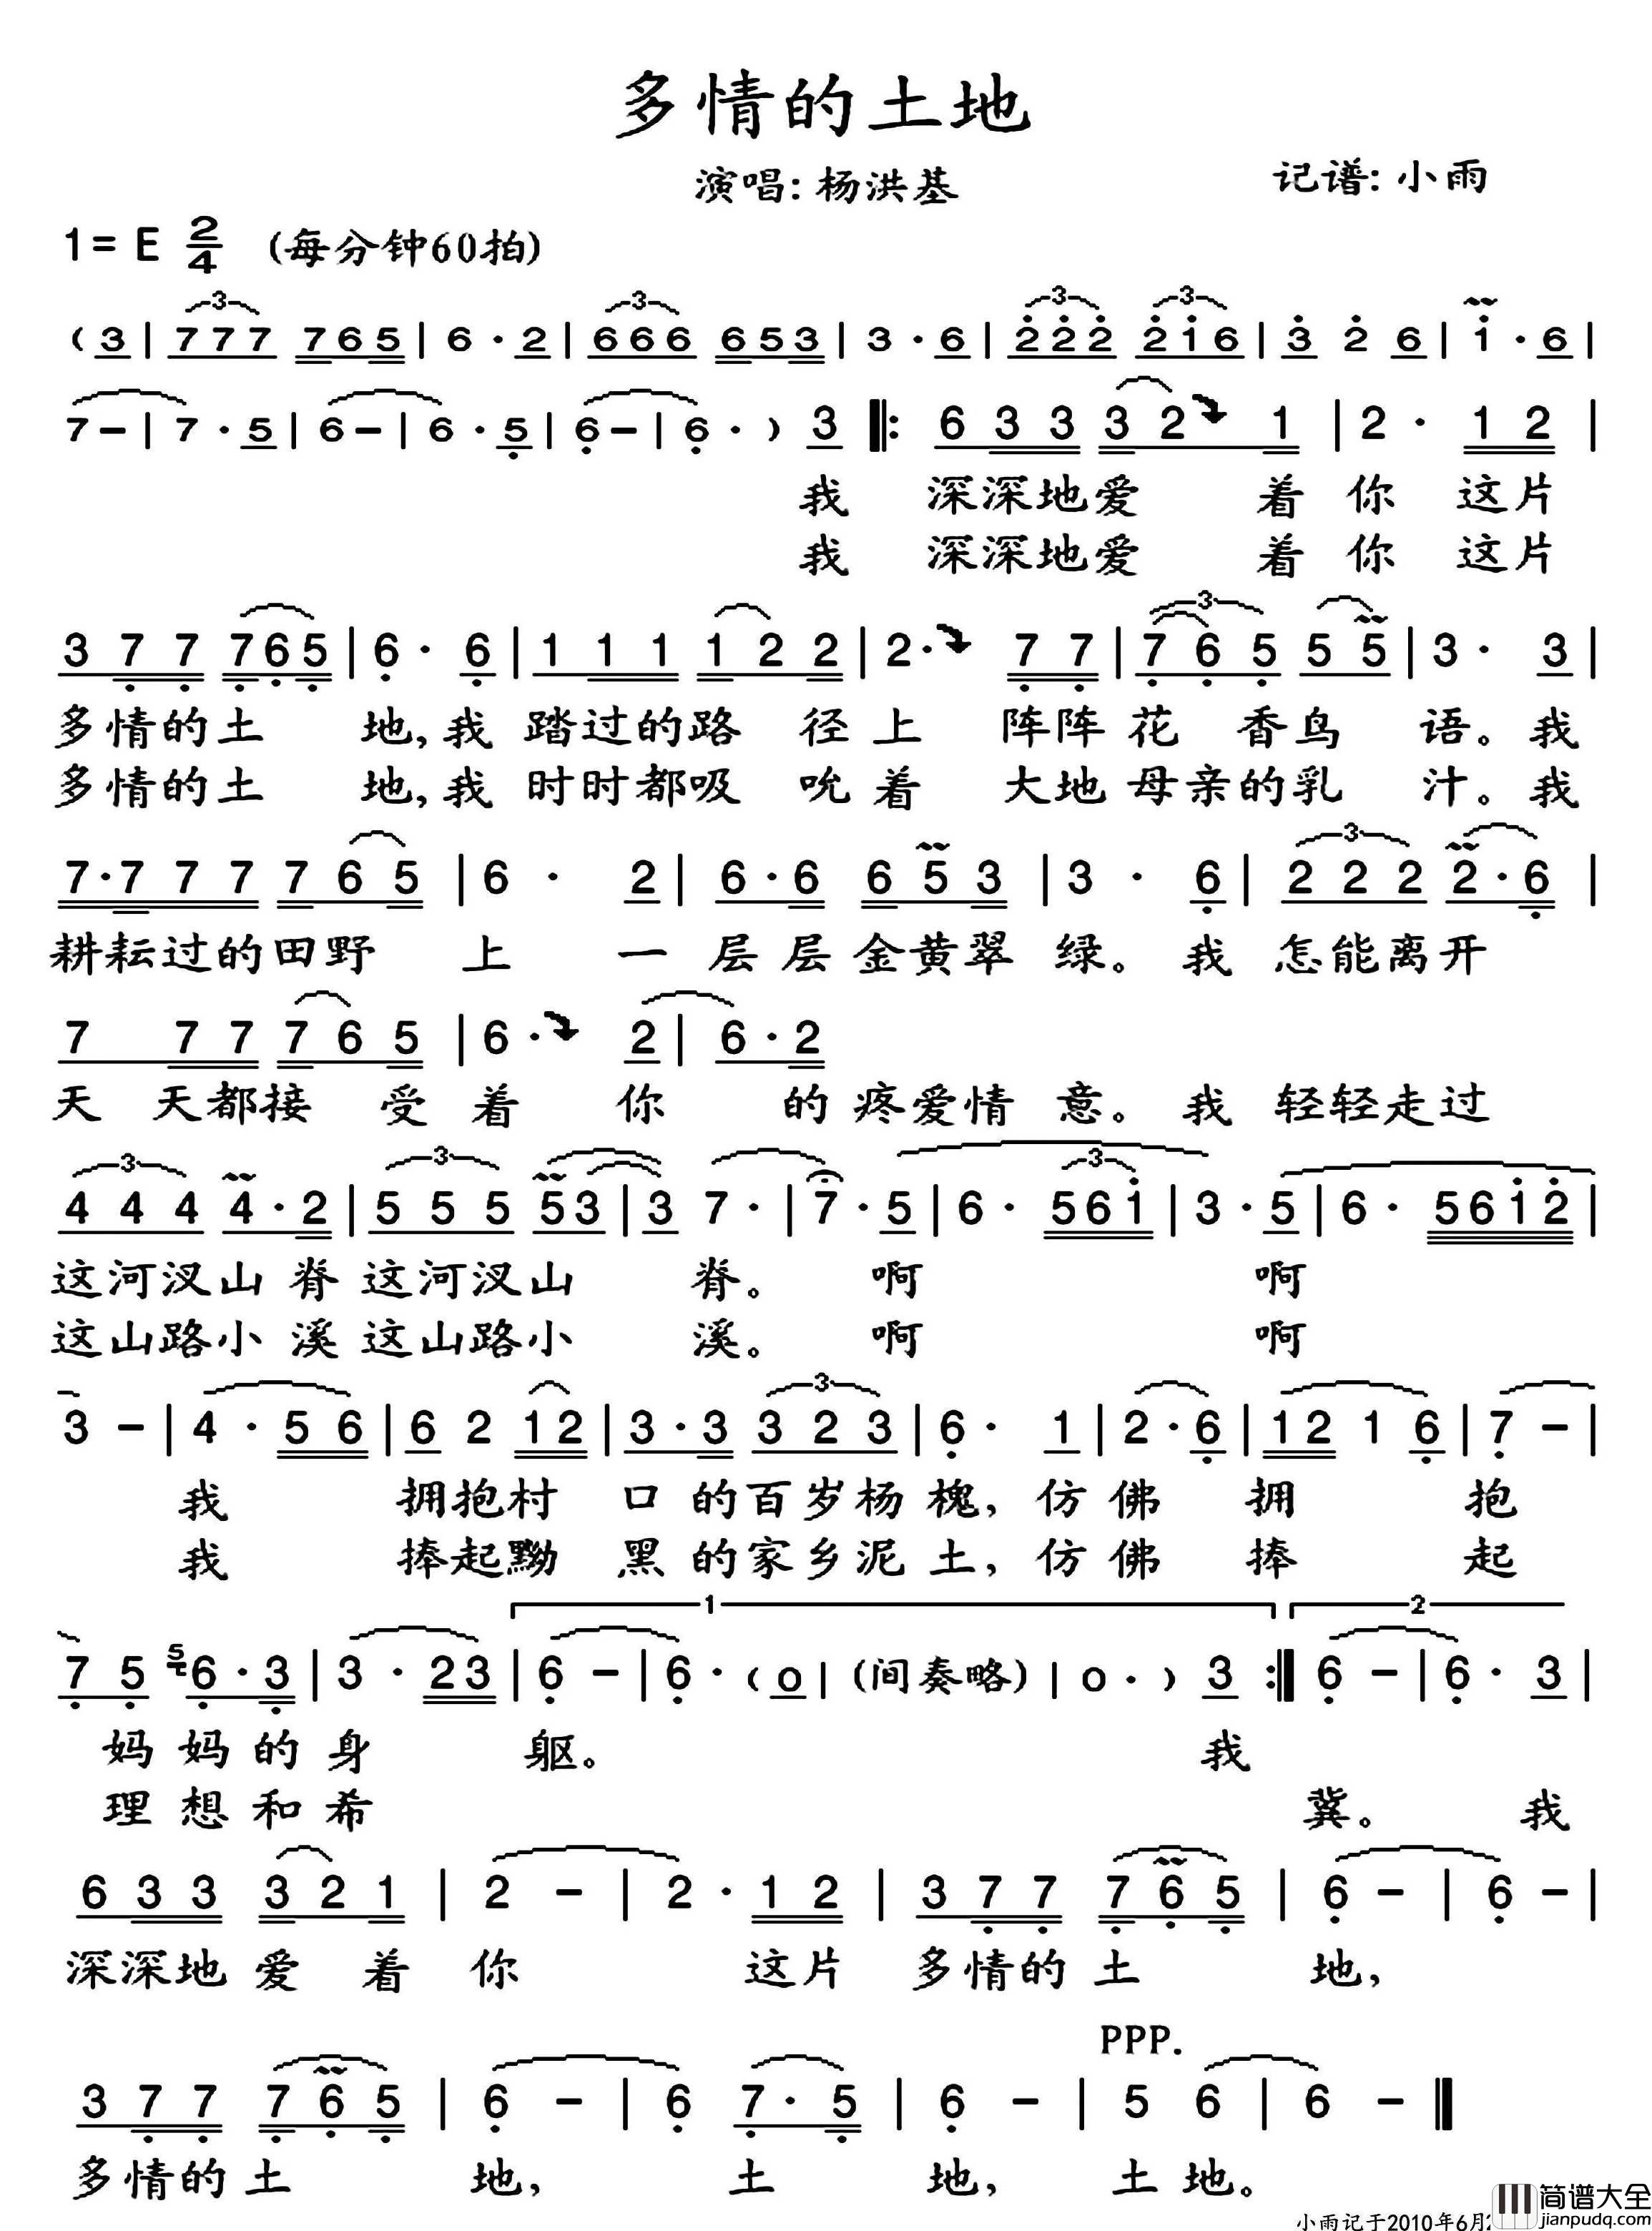 多情的土地
演唱: 杨洪基
记谱: 小雨
1= E 2/4 (每分钟60拍)
( 3 | 7 7 7 7 6 5 | 6 · 2 | 6 6 6 6 5 3 | 3 · 6 | 2 2 2 2 1 6 | 3 2 6 | 1 · 6 |
7 – | 7 · 5 | 6 – | 6 · 5 | 6 – | 6 · ) 3 ‖: 6 3 3 3 2 1 | 2 · 1 2 |
我 深深地爱 着 你 这片
我 深深地爱 着 你 这片
3 7 7 7 6 5 | 6 · 6 | 1 1 1 1 2 2 | 2 · 7 7 | 7 6 5 5 5 | 3 · 3 |
多情的土 地,我 踏过的路 径上 阵阵花 香鸟 语。我
多情的土 地,我 时时都吸 吮着 大地母亲的乳 汁。我
7 · 7 7 7 7 6 5 | 6 · 2 | 6 · 6 6 5 3 | 3 · 6 | 2 2 2 2 · 6 |
耕耘过的田野 上 一 层层金黄翠 绿。我 怎能离开
7 7 7 7 6 5 | 6 · 2 | 6 · 2
天 天都接 受着 你 的疼爱情 意。我 轻轻走过
4 4 4 4 · 2 | 5 5 5 5 3 | 3 7 · | 7 · 5 | 6 · 5 6 1 | 3 · 5 | 6 · 5 6 1 2 |
这河汊山 脊这河汊山 脊。 啊 啊
这山路小 溪这山路小 溪。 啊 啊
3 – | 4 · 5 6 | 6 2 1 2 | 3 · 3 3 2 3 | 6 · 1 | 2 · 6 | 1 2 1 6 | 7 – |
我 拥抱村 口 的百岁杨 槐,仿佛 拥 抱
我 捧起黝 黑 的家乡泥 土,仿佛 捧 起
1 2
7 5 5 6 · 3 | 3 · 2 3 | 6 – | 6 · ( 0 | (间奏略) | 0 · ) 3 :‖ 6 – | 6 · 3 |
妈 妈 的 身 躯。 我
理 想 和 希 冀。 我
6 3 3 3 2 1 | 2 – | 2 · 1 2 | 3 7 7 7 6 5 | 6 – | 6 – |
深深地 爱 着 你 这片 多情的 土 地,
PPP.
3 7 7 7 6 5 | 6 – | 6 7 · 5 | 6 – | 5 6 | 6 – ‖
多情的 土 地, 土 地, 土 地。
小雨记于2010年6月2
简谱大全
jianpudq.com